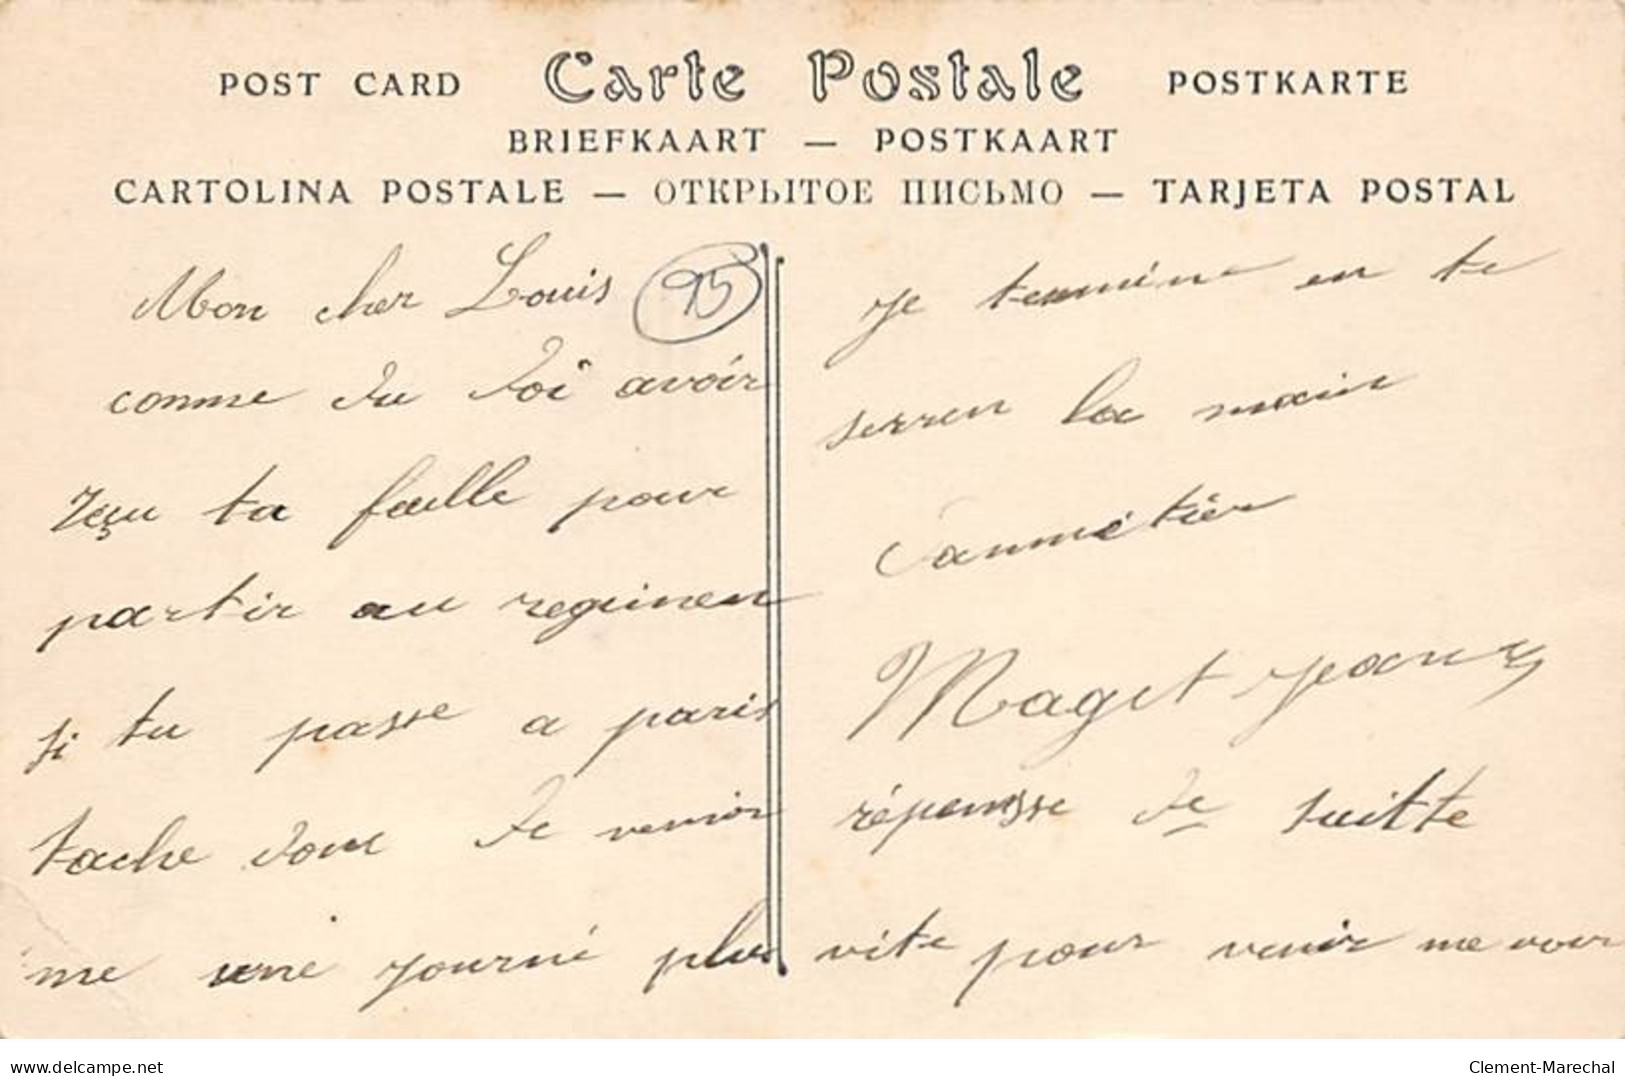 POST CARD Carte Postale POSTKARTE
BRIEFKAART — POSTKAART
CARTOLINA POSTALE — ОТКРЫТОЕ ПИСЬМО — TARJETA POSTAL
Mon cher Louis
95
comme du doi avoir
reçu ta faulle pour
partir au regimen
si tu passe a paris
tache donc de venir
me une journé plus
je termine en te
serren la main
Maget
réponsse de suitte
vite pour venir me voir
delcampe.net
Clement-Marechal